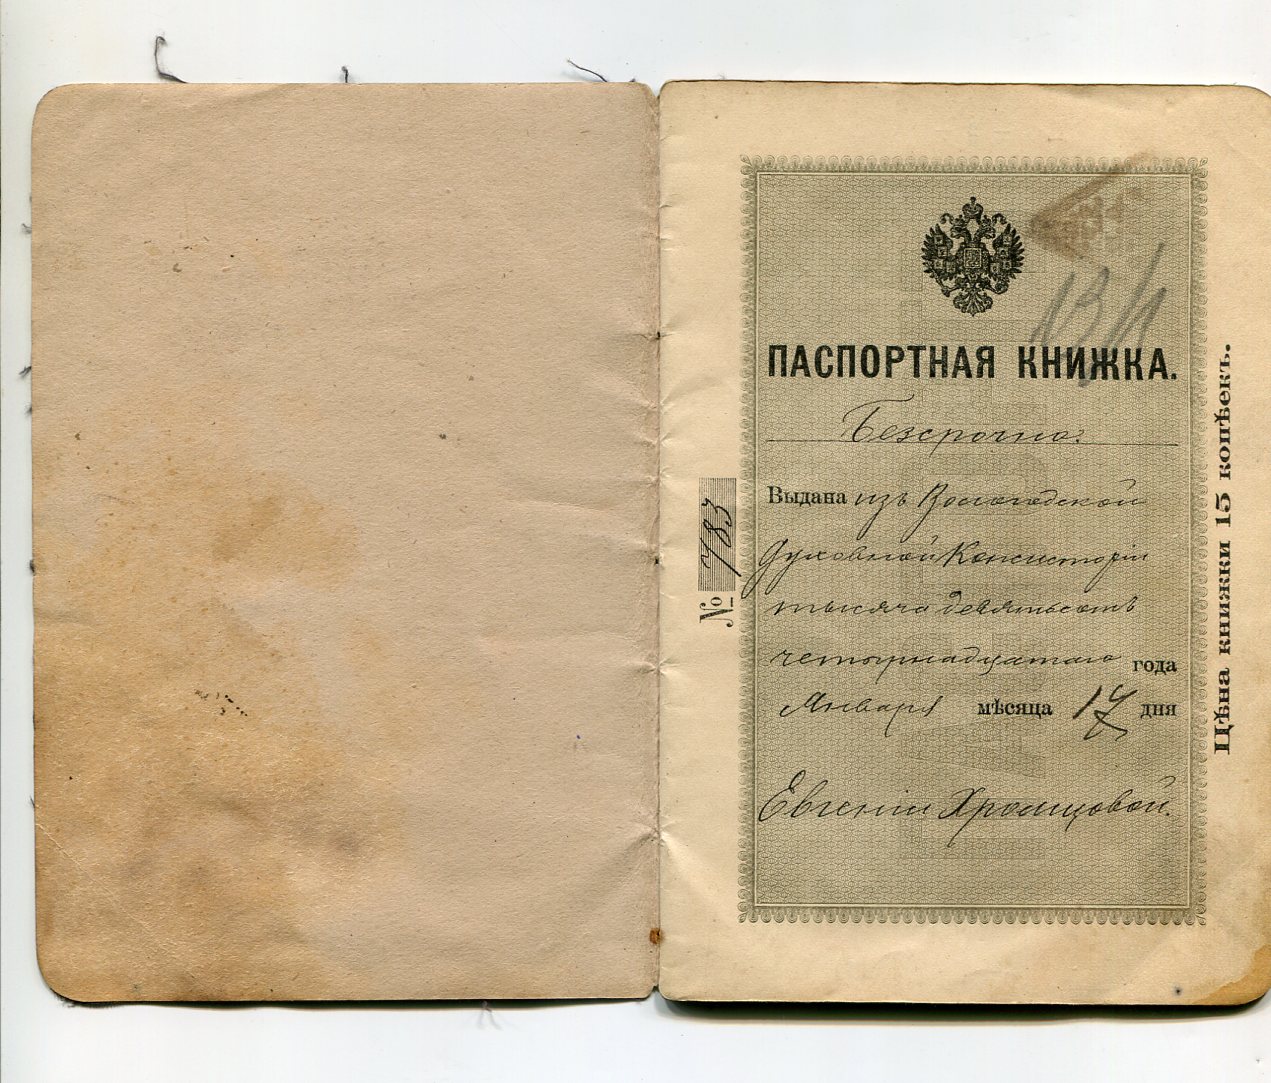 ПАСПОРТНАЯ КНИЖКА.
Безсрочно:
Выдана изъ Вологодской
Духовной Консисторіи
тысяча девятьсотъ
четырнадцатаго года
Января мѣсяца 17 дня
Евгеніи Хромцовой.
№ 783
Цѣна книжки 15 копѣекъ.